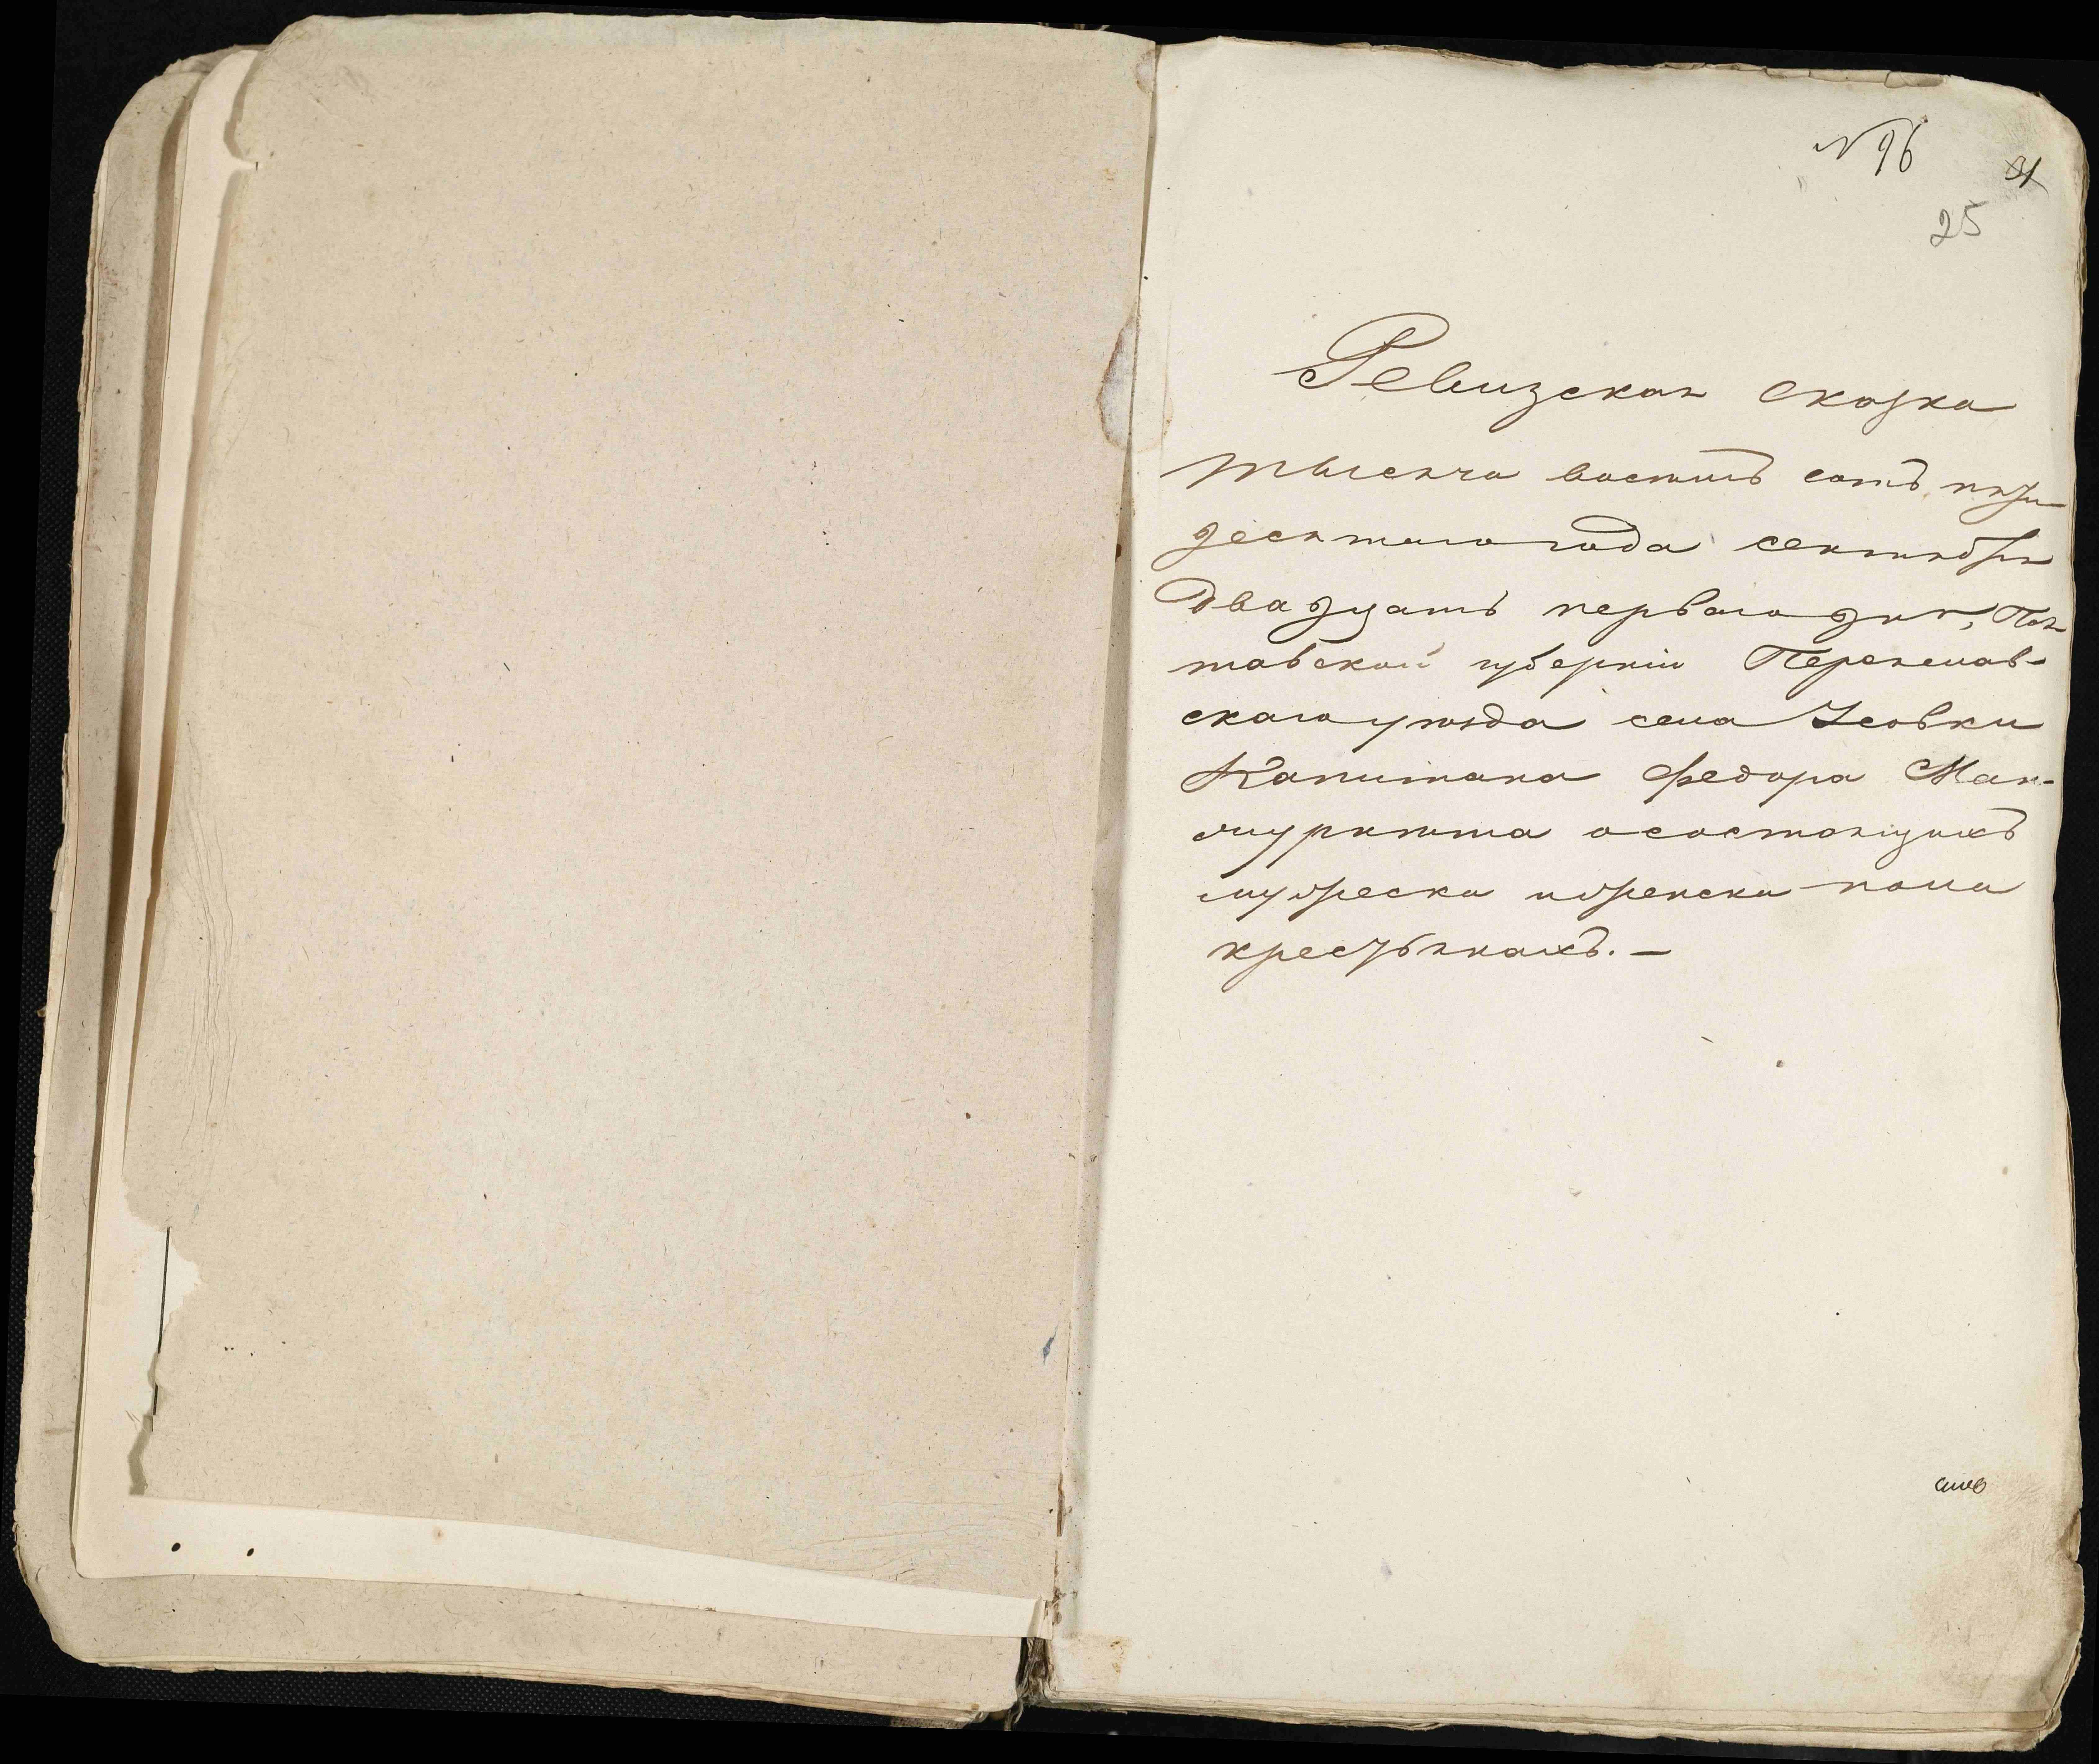 № 96
31
25
Ревизская сказка
тысяча восемь сотъ пяти
десятого года сентября
двадцать первого дня, Пол
тавской губерніи Переяслав-
скаго уезда села Усовки
Капитана Федора
о состоящихъ
мужеска и женска пола
крестьянахъ. —